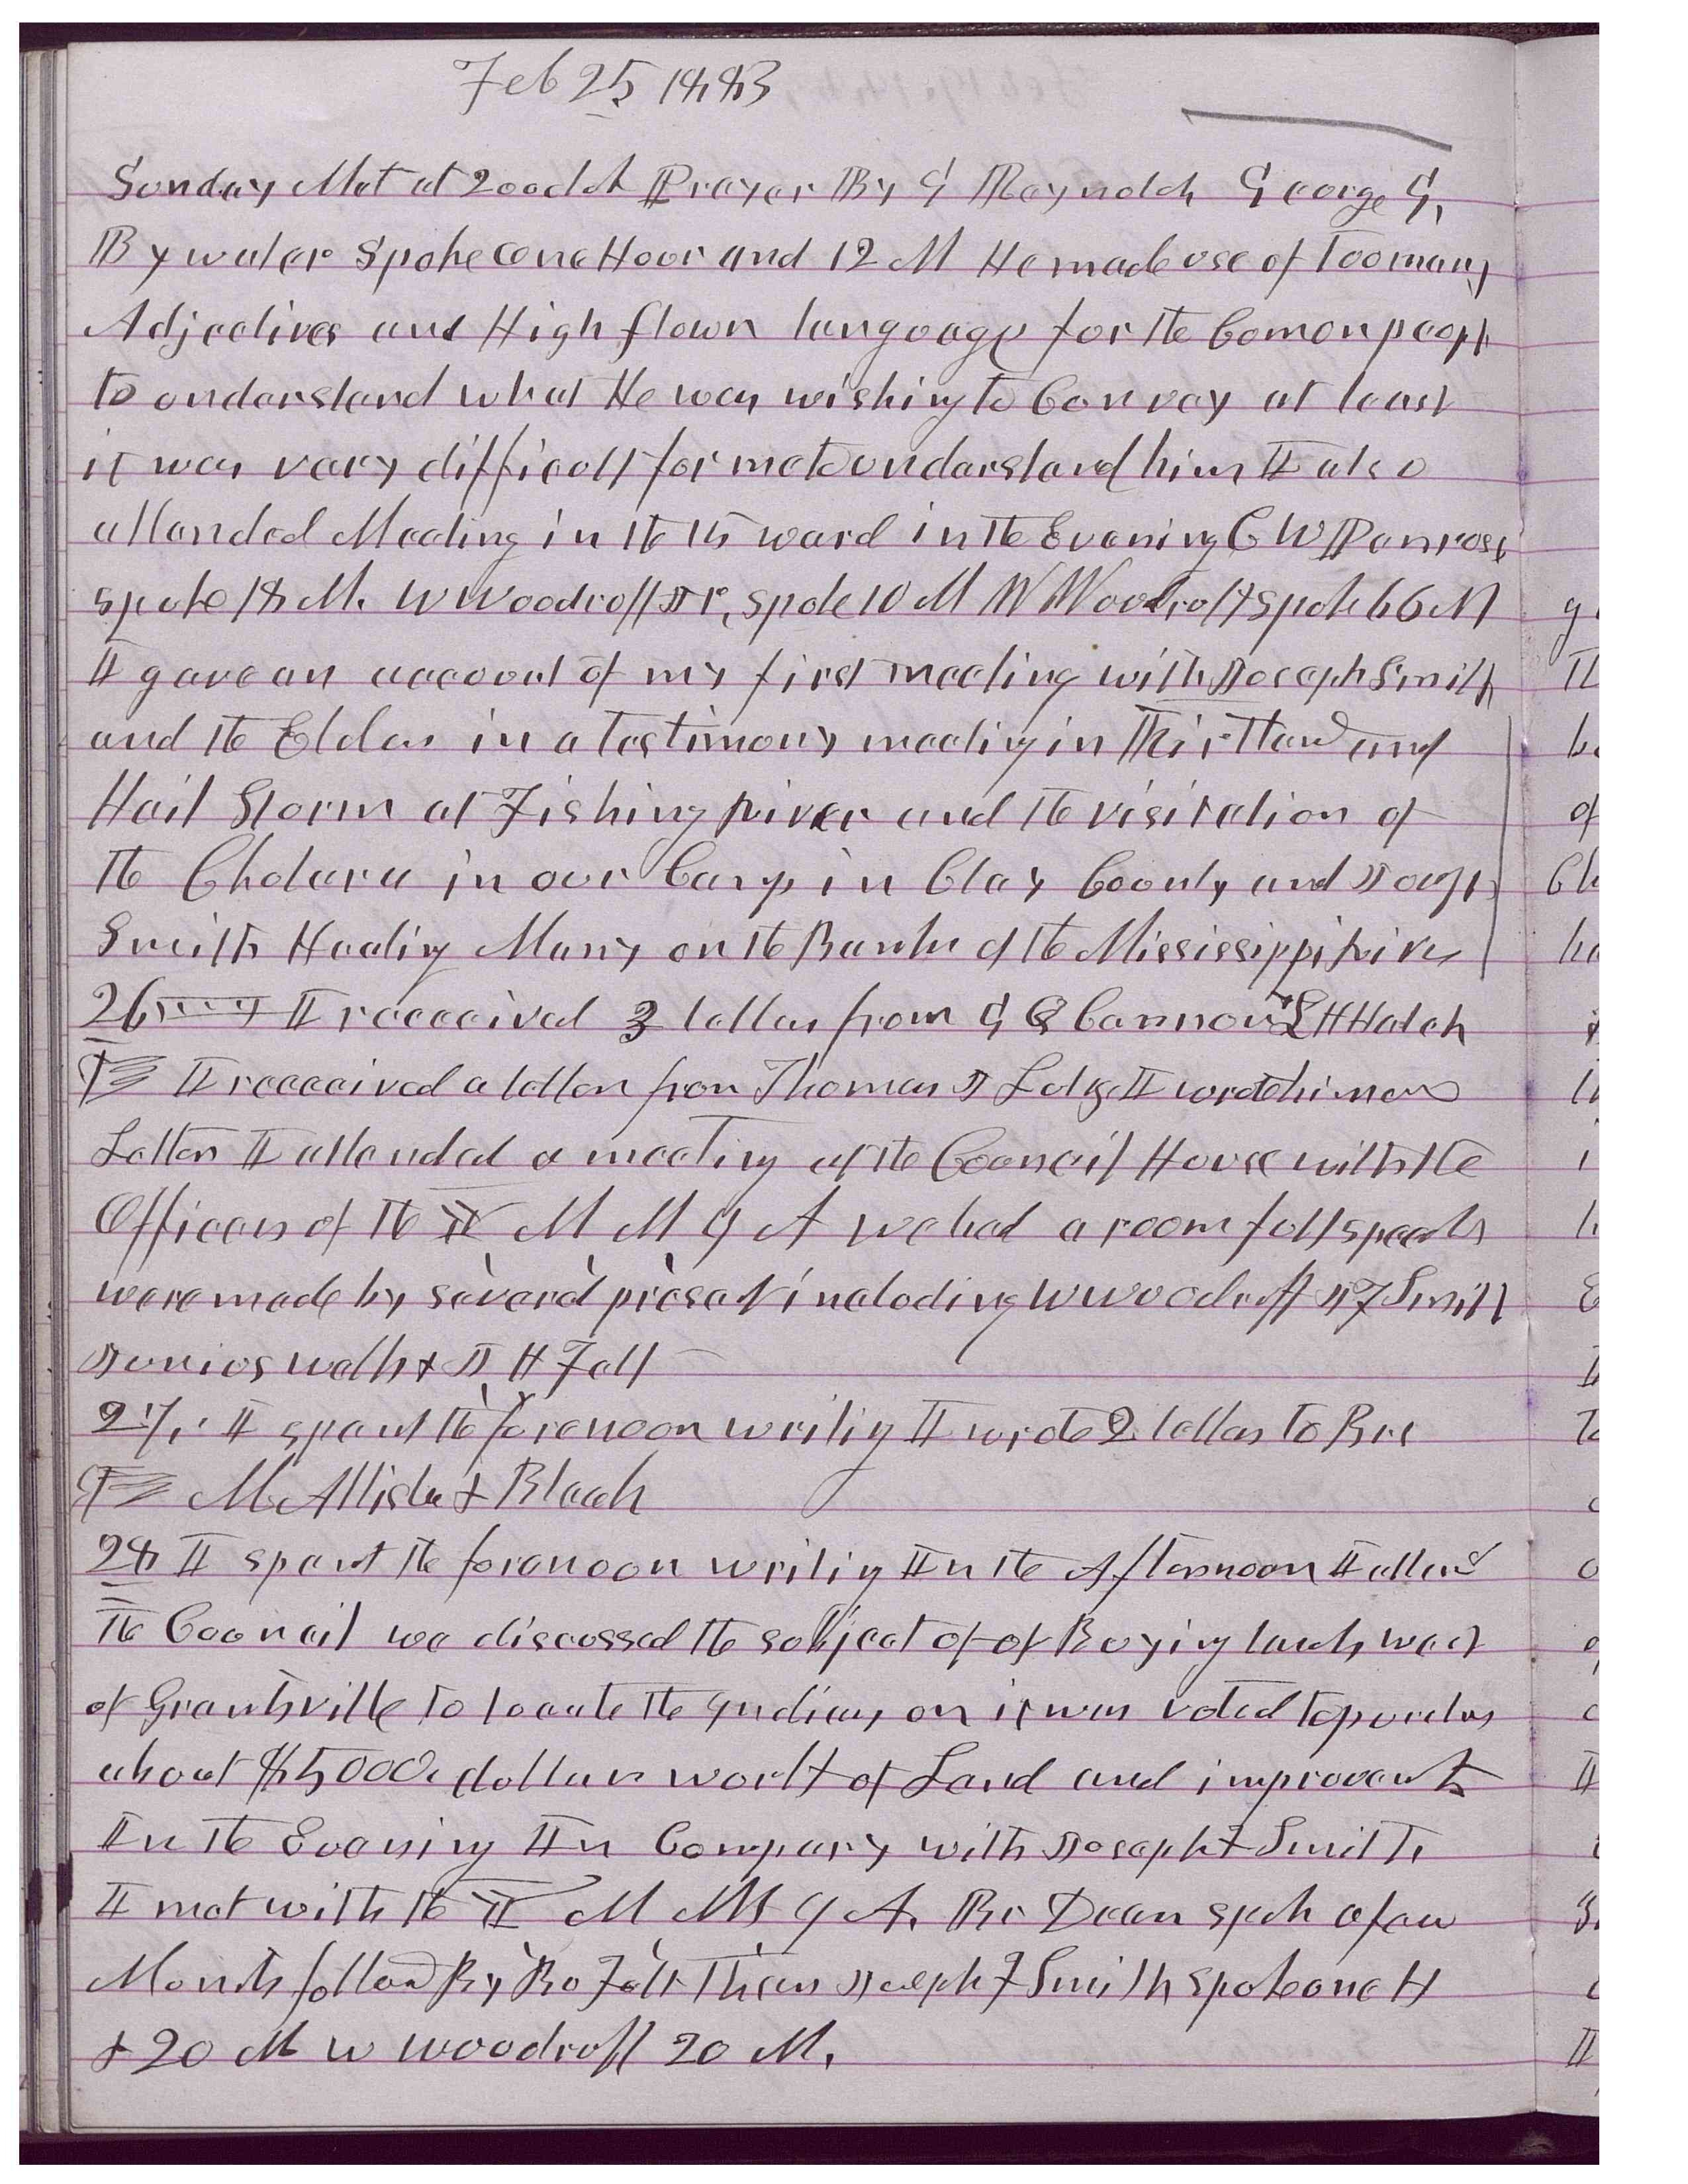 Feb 25 1883
Sunday Met at 2 oclok Prayer By G Reynolds George G.
Bywater Spoke one Hour and 12 M He made use of Too many
Adjectives and High flown language for the Comon people
to understand what He was wishing to Convey at least
it was very difficult for me to understand him I also
attended Meeting in the 15 ward in the Evening C W Penrose
spoke 18 M. W Woodruff Jr, spoke 10 M W Woodruff spoke 66 M
I gave an account of my first meeting with Joseph Smith
and the Elders in a Testimony meeting in Kirtland and
Hail Storm at Fishing River and the visitation of
the Cholera in our Camp in Clay County and Joseph
Smith Healing Many on the Banks of the Mississippi River
26 I received 3 letters from G Q Cannon & L H Hatch
I received a letter from Thomas J I wrote him one
Letter I attended a meeting at the Council House with the
Officers of the Y M M I A we had a room full speeches
were made by several present including W Woodruff J F Smith
Junius Wells & J H Felt
27, I spent the forenoon writing I wrote 2 letters to Brs
McAllister & Bleak
28 I spent the forenoon writing In the Afternoon I attend
the Council we discussed the subject of of Buying lands west
of Grantsville to locate the Indians on it was voted to purchas
about $5000. dollars worth of Land and improvents
In the Evening In Company with Joseph F Smith
I met with the Y M M I A. Br Dean spoke a few
Moments followed By Br Felt Then Joseph F Smith spoke one H
& 20 M W Woodruff 20 M.